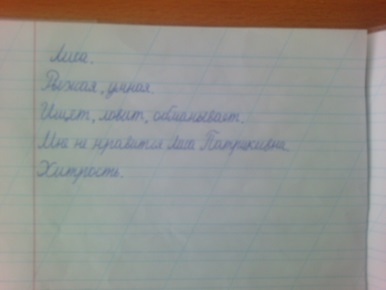 Лиса.
Рыжая, умная.
Ищет, ловит, обманывает.
Мне не нравится лиса Патрикевна.
Хитрость.